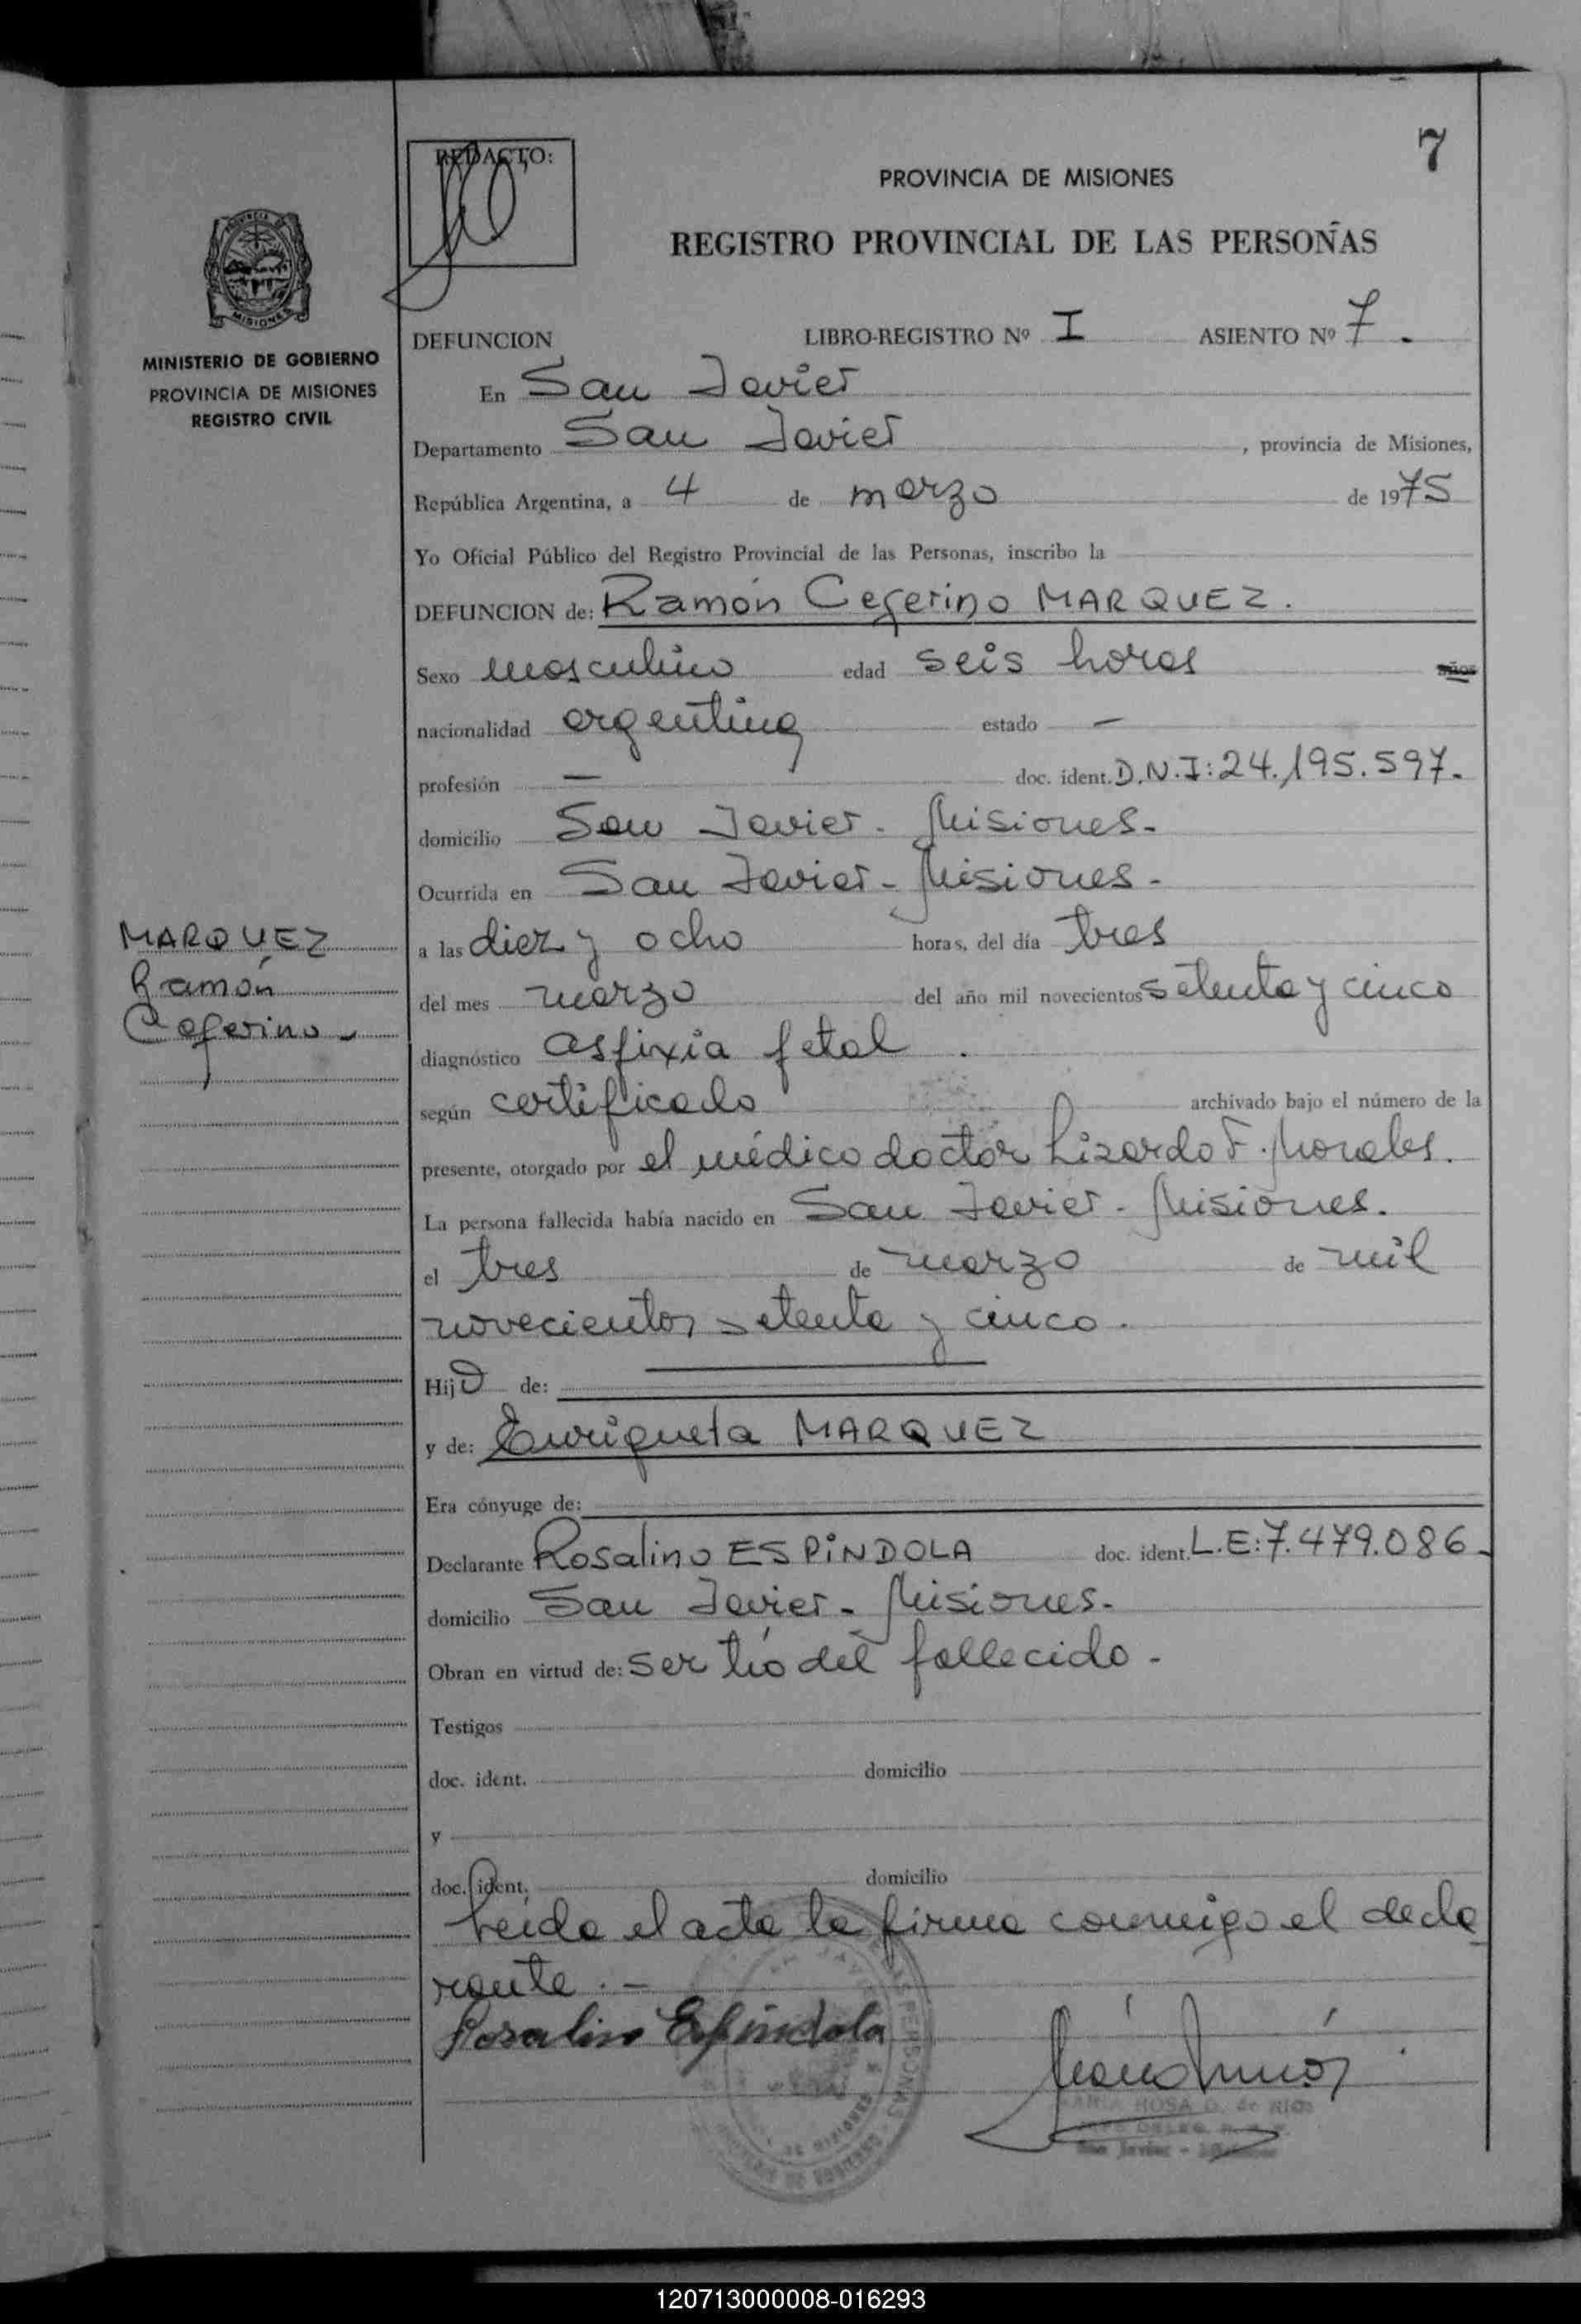 7
REDACTO:
PROVINCIA DE MISIONES
REGISTRO PROVINCIAL DE LAS PERSONAS
MINISTERIO DE GOBIERNO
PROVINCIA DE MISIONES
REGISTRO CIVIL
DEFUNCION LIBRO-REGISTRO Nº I ASIENTO Nº 7.
En San Javier
Departamento San Javier, provincia de Misiones,
República Argentina, a 4 de marzo de 1975
Yo Oficial Público del Registro Provincial de las Personas, inscribo la
DEFUNCION de: Ramón Ceferino MARQUEZ.
Sexo masculino edad seis horas años
nacionalidad argentina estado —
profesión — doc. ident. D.N.I: 24.195.597.
domicilio San Javier - Misiones-
Ocurrida en San Javier - Misiones-
MARQUEZ
Ramón
Ceferino-
a las diez y ocho horas, del día tres
del mes marzo del año mil novecientos setenta y cinco
diagnóstico asfixia fetal.
según certificado archivado bajo el número de la
presente, otorgado por el médico doctor Lizardo F. Morales.
La persona fallecida había nacido en San Javier - Misiones.
el tres de marzo de mil
novecientos setenta y cinco.
Hijo de:
y de: Enriqueta MARQUEZ
Era cónyuge de:
Declarante Rosalino ESPINDOLA doc. ident. L.E: 7.479.086-
domicilio San Javier - Misiones-
Obran en virtud de: ser tío del fallecido-
Testigos
doc. ident. domicilio
y
doc. ident. domicilio
Leida el acta la firma conmigo el decla
rante.-
Rosalino Espindola
MARIA ROSA D. de RIOS
San Javier - Misiones
120713000008-016293